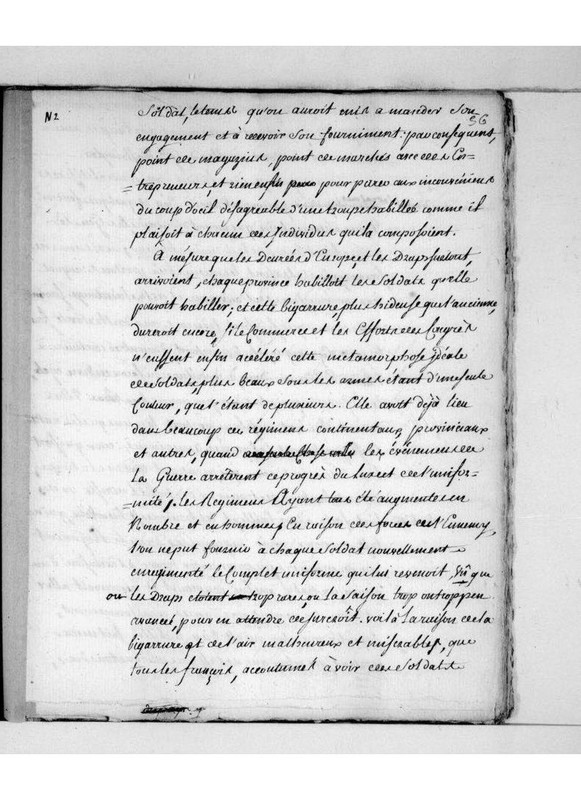 N2
36
Soldat, letems qu'on auroit mis a mander Son
engagement et à recevoir Son fourniment: par consequent,
point de magazins, point de marchés avec des En-
-trepreneurs, et rien enfin pour parer aux inconvéniens
du coup d'oeil désagréable d'une troupe habillée comme il
plaisoit à chacun des Individus qui la composoient.
A mésure que les Denrées d'Europe, et les Draps surtout,
arrivoient, chaque province habilloit les Soldats qu'elle
pouvoit habiller; et cette bigarrure, plus hideuse que l'ancienne,
dureroit encore, Si le Commerce et les Efforts du Congrès
n'eussent enfin accéléré cette métamorphose idéale
de Soldats, plus beaux Sous les armes étant d'une seule
Couleur, que s'étant de plusieurs. Elle avoit déjà lieu
dans beaucoup de régimens continentaux, provinciaux
et autres, quand les événemens de
la Guerre arrêterent ce progrès du Luxe et de l'unifor-
-mité. Les Regimens Ayant tous été augmentés en
Nombre et en hommes, En raison des forces de l'Ennemy,
l'on ne put fournir à chaque Soldat nouvellement
enregimenté le Complet uniforme qui lui revenoit, Vû que
ou les Draps étoient trop rares, ou La Saison trop ou trop peu
avancée, pour en attendre de surcroît. voilà La raison de la
bigarrure et de l'air malheureux et miserable, que
tous les françois, accoutumés à voir des Soldats